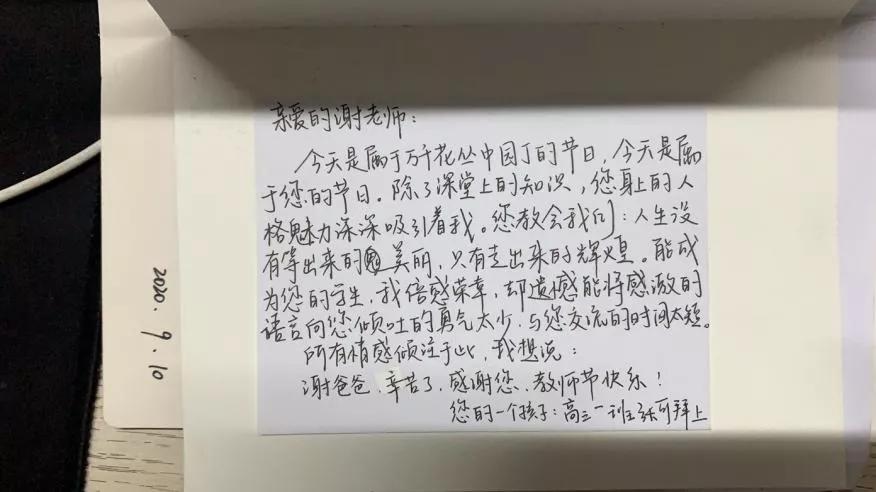 亲爱的谢老师：
今天是属于万千花丛中园丁的节日，今天是属
于您的节日。除了课堂上的知识，您身上的人
格魅力深深吸引着我。您教会我们：人生没
有等出来的美丽，只有走出来的辉煌。能成
为您的学生，我倍感荣幸，却遗憾能将感激的
语言向您倾吐的勇气太少，与您交流的时间太短。
所有情感倾注于此，我想说：
谢爸爸，辛苦了，感谢您，教师节快乐！
您的一个孩子：高三一班 可拜上
2020. 9. 10